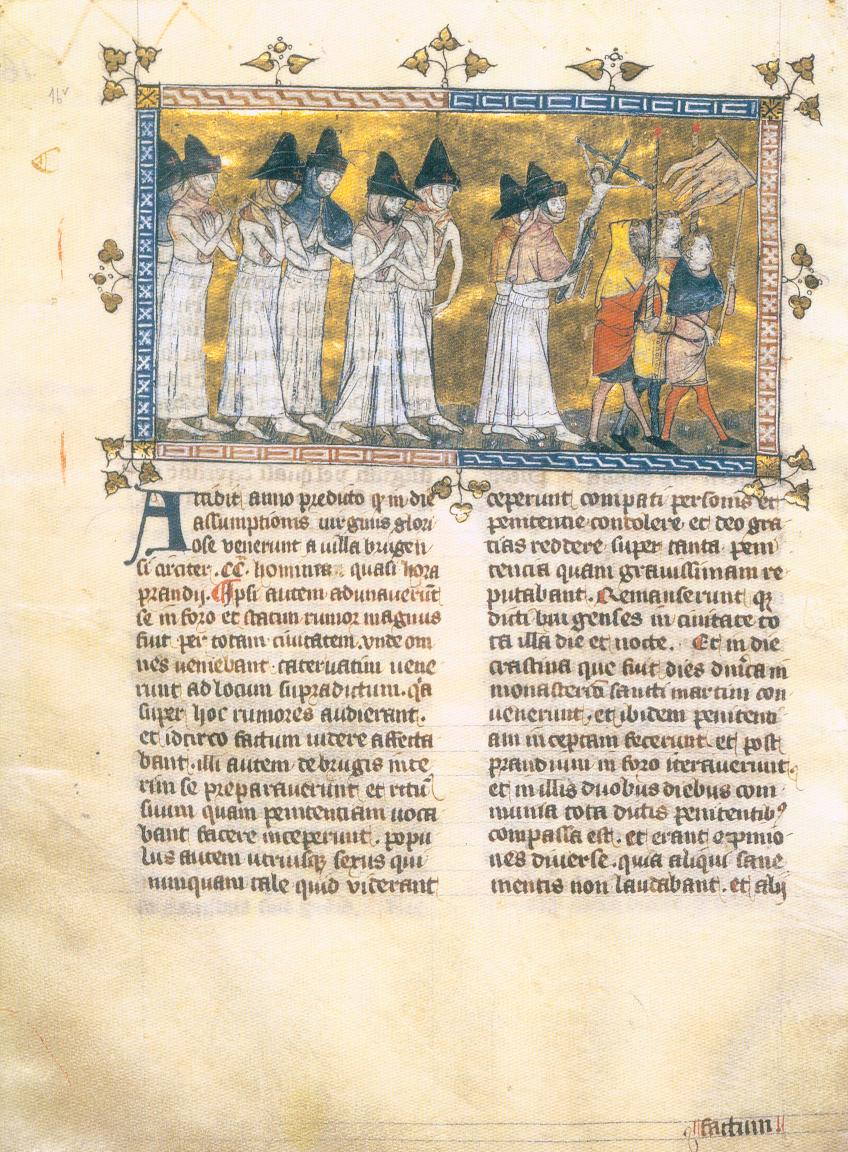 16v
Accidit anno predicto q in die
assumptionis virginis glori
ose venerunt a villa brugen
si circiter .CC. homines quasi hora
prandij. Ipsi autem adunaverūt
se in foro et statim rumor magnus
fuit per totam civitatem. unde om
nes veniebant catervatim vene
runt ad locum supradictum. q̄a
super hoc rumores audierant.
et idcirco factum videre affecta
bant. illi autem de brugis inte
rim se preparaverunt et ritū
suum quam penitentiam voca
bant facere inceperunt. popu
lus autem utriusq; sexus qui
nunquam tale quid viderant
ceperunt compati personis et
penitentie condolere et deo gra
tias reddere super tanta peni
tencia quam gravissimam re
putabant. Remanserunt q;
dicti brugenses in civitate to
ta illa die et nocte. Et in die
crastina que fuit dies dn̄ica in
monasterio sancti martini con
venerunt. et ibidem penitenti
am inceptam fecerunt et post
prandium in foro iteraverunt.
et in illis duobus diebus com
munia tota dictis penitentibꝰ
compassa est. et erant opinio
nes diverse. quia aliqui sane
mentis non laudabant. et alij
factum